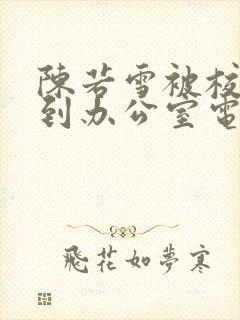 陳若雪被校
到办公室電
飛花如夢寒